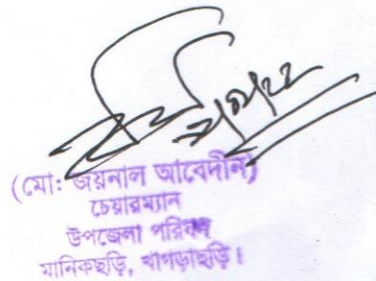 (মো: জয়নাল আবেদীন)
চেয়ারম্যান
উপজেলা পরিষদ
মানিকছড়ি, খাগড়াছড়ি।